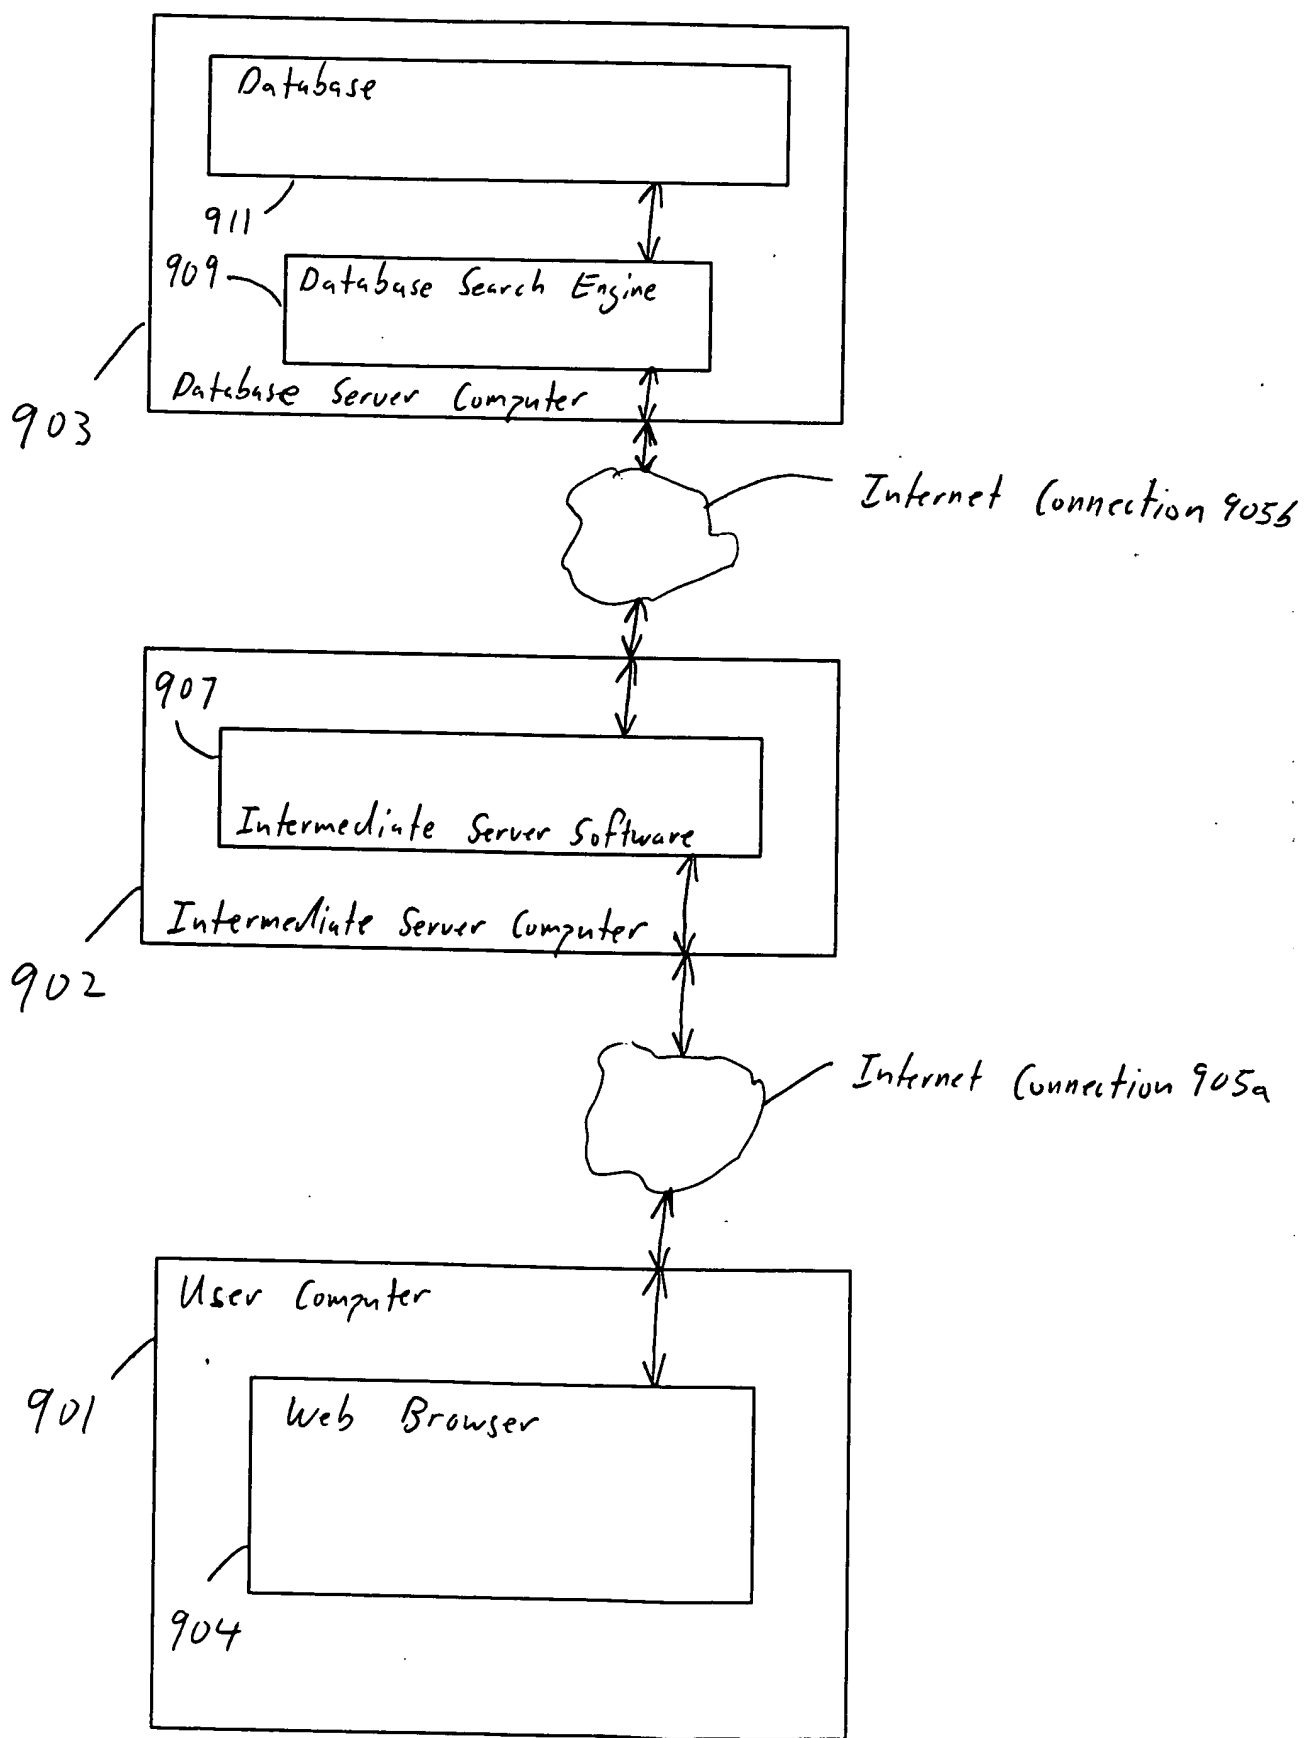 Database
911
909
Database Search Engine
Database Server Computer
903
Internet Connection 905b
907
Intermediate Server Software
Intermediate Server Computer
902
Internet Connection 905a
User Computer
901
Web Browser
904